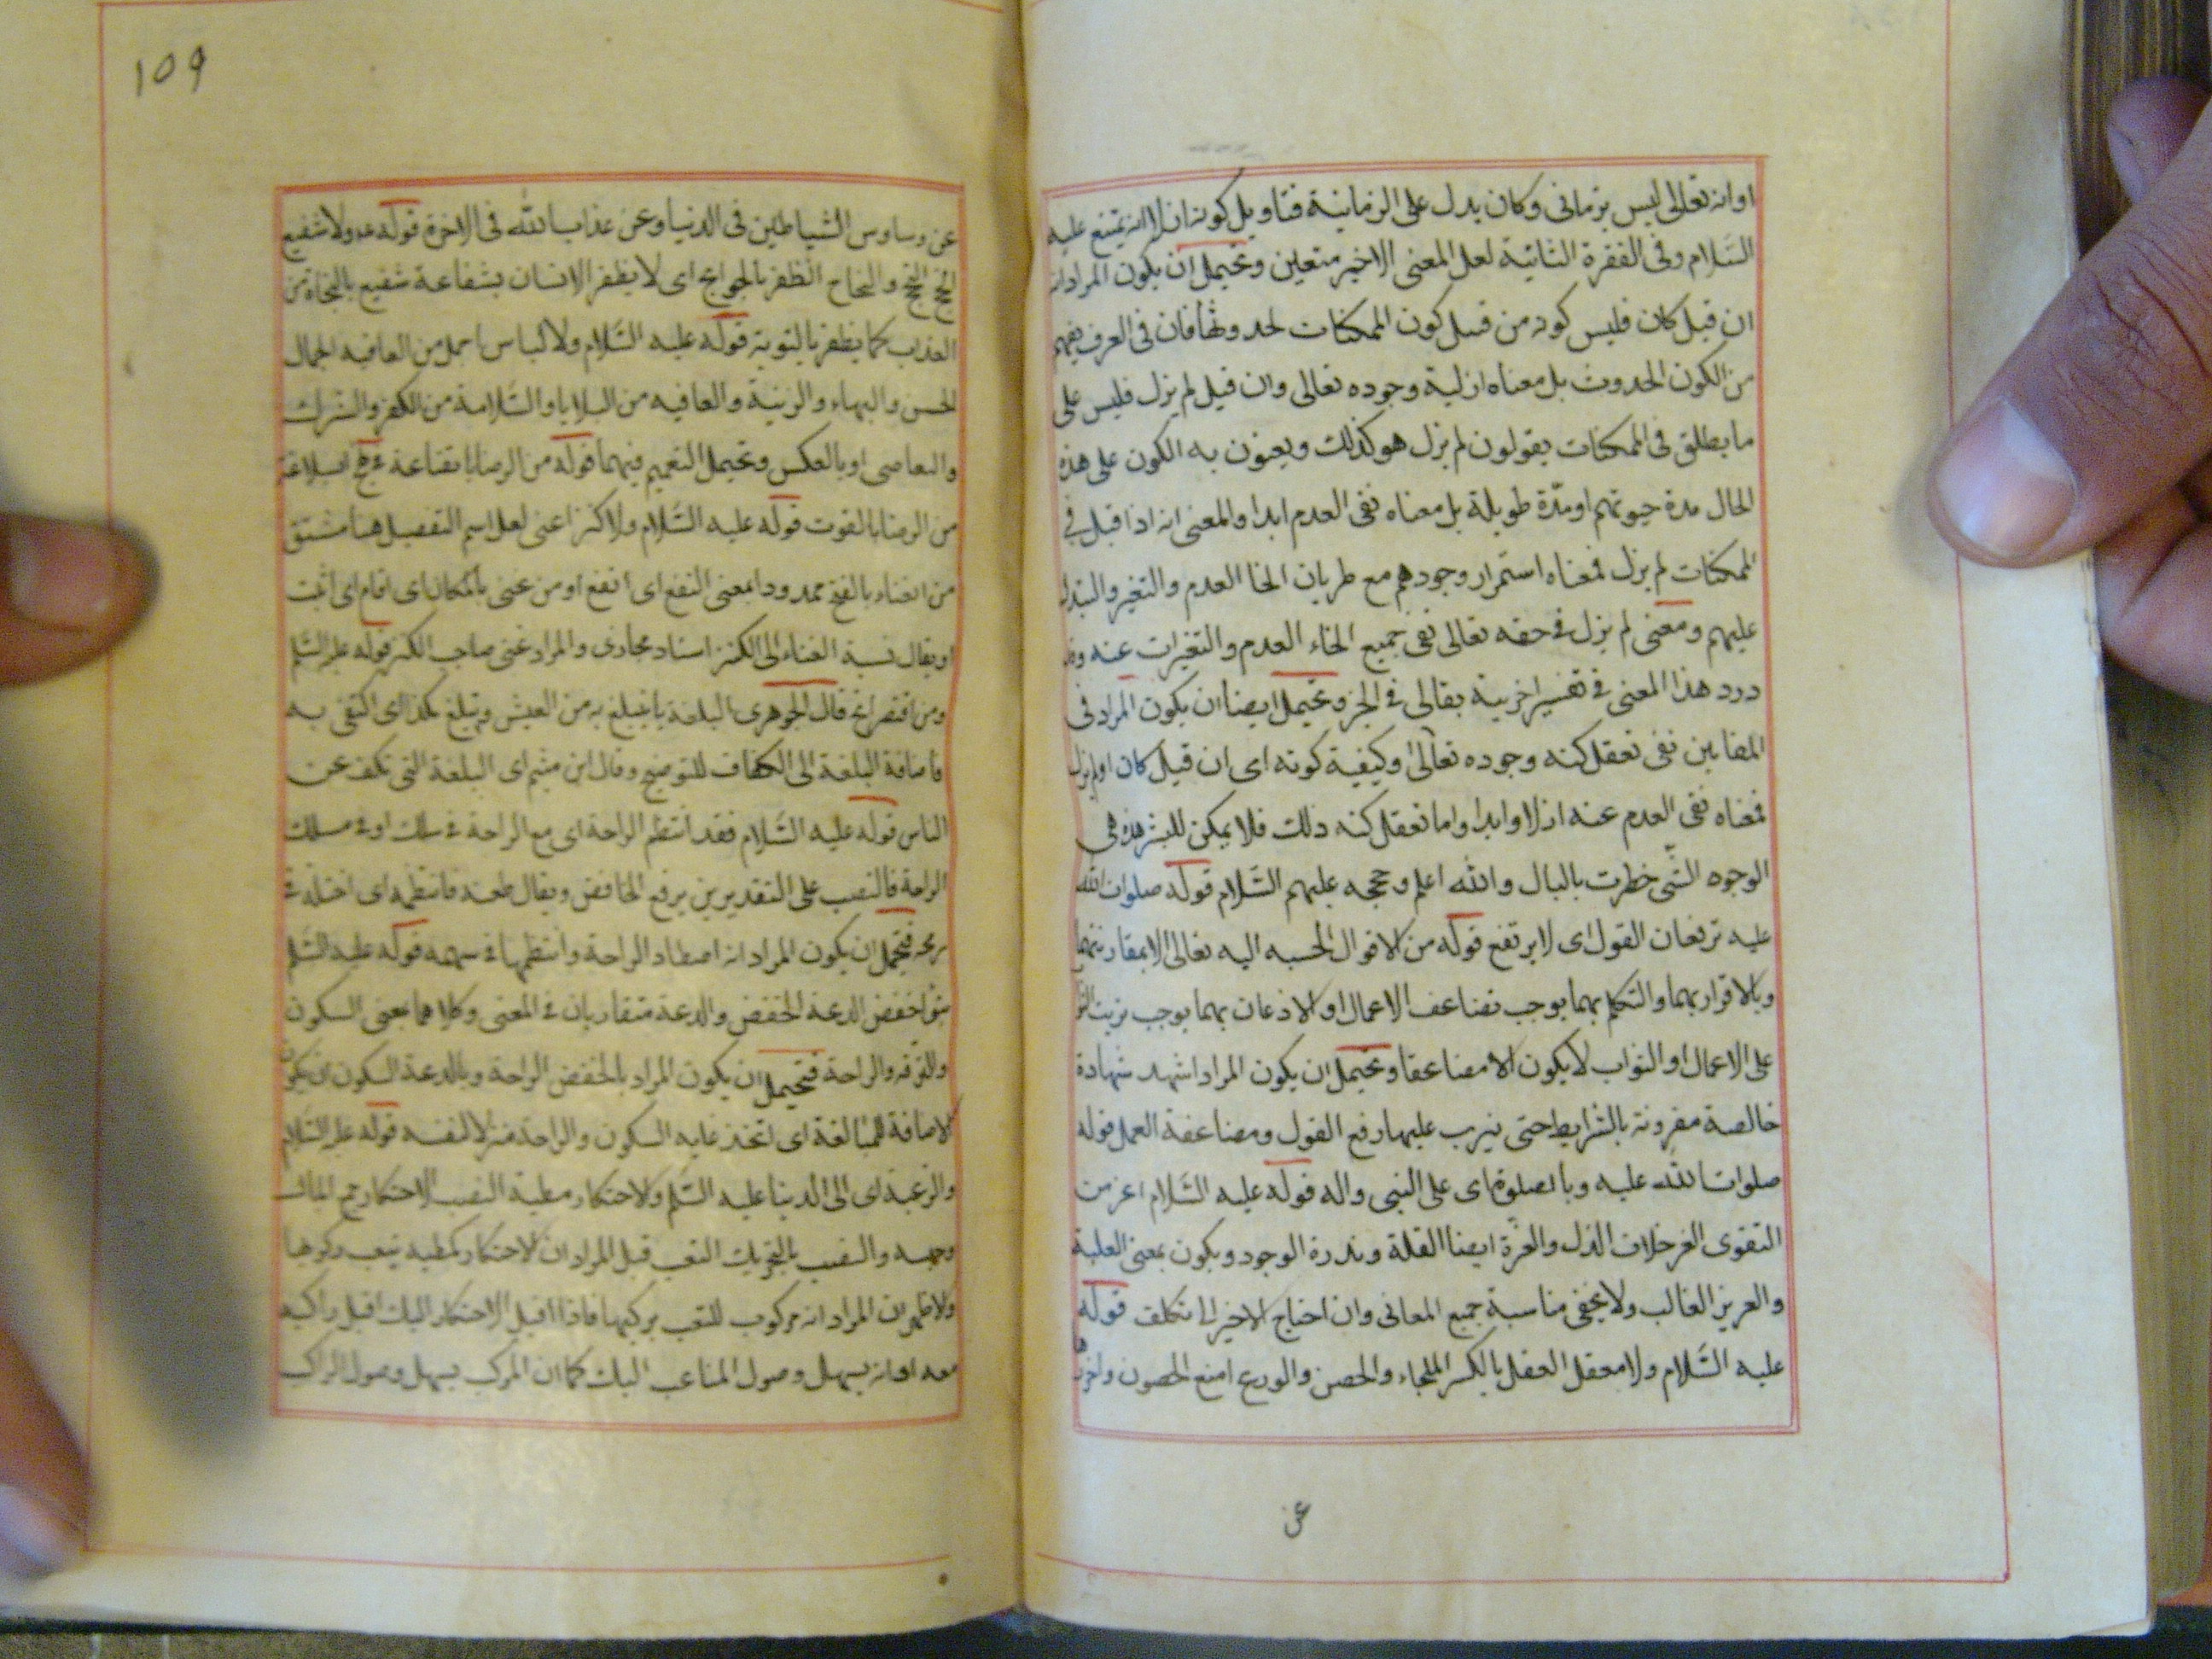 او انه تعالى ليس بزمانى وكان يدل على الزمانية فتاويل كونه ازلا انه يمتنع عليه
السَّلام وفى الفقرة الثانية لعل المعنى الاخير متعين ويحتمل ان يكون المراد انه
ان قيل كان فليس كونه من قبيل كون الممكنات لحدوثها فان فى العرف يفهم
من الكون الحدوث بل معناه ازلية وجوده تعالى وان قيل لم يزل فليس على
ما يطلق فى الممكنات يقولون لم يزل هو كذلك ويعنون به الكون على هذه
الحال مدة حيوتهم او مدّة طويلة بل معناه نفى العدم ابدا والمعنى انه اذا قيل فى
الممكنات لم يزل فمعناه استمرار وجودهم مع طريان انحا العدم والتغير والتبدل
عليهم ومعنى لم يزل فى حقه تعالى نفى جميع انحاء العدم والتغيرات عنه وقد
ورد هذا المعنى فى تفسير اخرية تعالى فى الخبر ويحتمل ايضا ان يكون المراد فى
المقامين نفى تعقل كنه وجوده تعالى او كيفية كونه اى ان قيل كان او لم يزل
فمعناه نفى العدم عنه ازلا وابدا واما تعقل كنه ذلك فلا يمكن للبشر هذه هى
الوجوه التّى خطرت بالبال والله اعلم وحججه عليهم السَّلام قوله صلوات الله
عليه ترفعان القول اى لا يرتفع قوله من الاقوال الحسنه اليه تعالى الا بمقارنتهما
وبالاقرار بهما والتكلم بهما يوجب تضاعف الاعمال او الاذعان بهما يوجب ترتب الثواب
على الاعمال او الثواب لا يكون الا مضاعفا ويحتمل ان يكون المراد اشهد شهادة
خالصة مقرونة بالشرايط حتى يترتب عليها رفع القول ومضاعفة العمل قوله
صلوات الله عليه وبالصلوة اى على النبى واله قوله عليه السَّلام اعز من
التقوى العز خلاف الذل والعزّة ايضا القلة وندرة الوجود ويكون بمعنى الغلبة
والعزيز الغالب ولا يخفى مناسبة جميع المعانى وان احتاج الاخير الى تكلف قوله
عليه السَّلام ولا معقل المعقل بالكسر الملجاء والحصن والورع امنع الحصون واحرزها
عن
١٥٩
عن وساوس الشياطين فى الدنيا وعن عذاب الله فى الاخرة قوله ولا شفيع
انجح النجح والنجاح الظفر بالحوايج اى لا يظفر الانسان بشفاعة شفيع بالنجاة من
العذاب كما يظفر بالتوبة قوله عليه السَّلام ولا لباس اجمل من العافيه الجمال
الحسن والبهاء والزينة والعافيه من البلايا والسَّلامة من الكفر والشرك
والمعاصى او بالعكس ويحتمل التعميم فيهما قوله من الرضا بالقناعة
من الرضا بالقوت قوله عليه السَّلام ولا كنز اغنى لعل اسم التفضيل هنا مشتق
من الغناء بالفتح ممدودا بمعنى النفع اى انفع او من غنى بالمكان اى اقام اى اثبت
او يقال نسبة الغناء الى الكنز اسناد مجازى والمراد غنى صاحب الكنز قوله عليه السَّلم
ومن اقتصر اه قال الجوهرى البلغة ما يتبلغ به من العيش وتبلغ بكذا اى اكتفى به
فاضافة البلغة الى الكفاف للتوضيح وقال ابن ميثم اى البلغة التى تكف عن
الناس قوله عليه السَّلام فقد انتظم الراحة اى مع الراحة فى سلك او فى مسلك
الراحة فالنصب على التقديرين بنزع الخافض ويقال طعنه فانتظمه اى اختله فى
رمحه فيحتمل ان يكون المراد انه اصطاد الراحة وانتظمها فى سهمه قوله عليه السَّلم
تبوّا خفض الدعة الخفض والدعة متقاربان فى المعنى وكلاهما بمعنى السكون
والترفّه والراحة فيحتمل ان يكون المراد بالخفض الراحة وبالدعة السكون او يكون
الاضافة للمبالغة اى اتخذ غاية السكون والراحة منزلا لنفسه قوله عليه السَّلام
والرغبة اى الى الدنيا عليه السَّلم والاحتكار مطية النصب الاحتكار جمع المال
وحبسه والنصب بالتحريك التعب قيل المراد ان الاحتكار كمطية يتعب ركوبها
والاظهر ان المراد انه مركوب للتعب يركبها فاذا اقبل الاحتكار اليك اقبل راكبه
معه او انه يسهل وصول المتاعب اليك كما ان المركب يسهل وصول الراكب